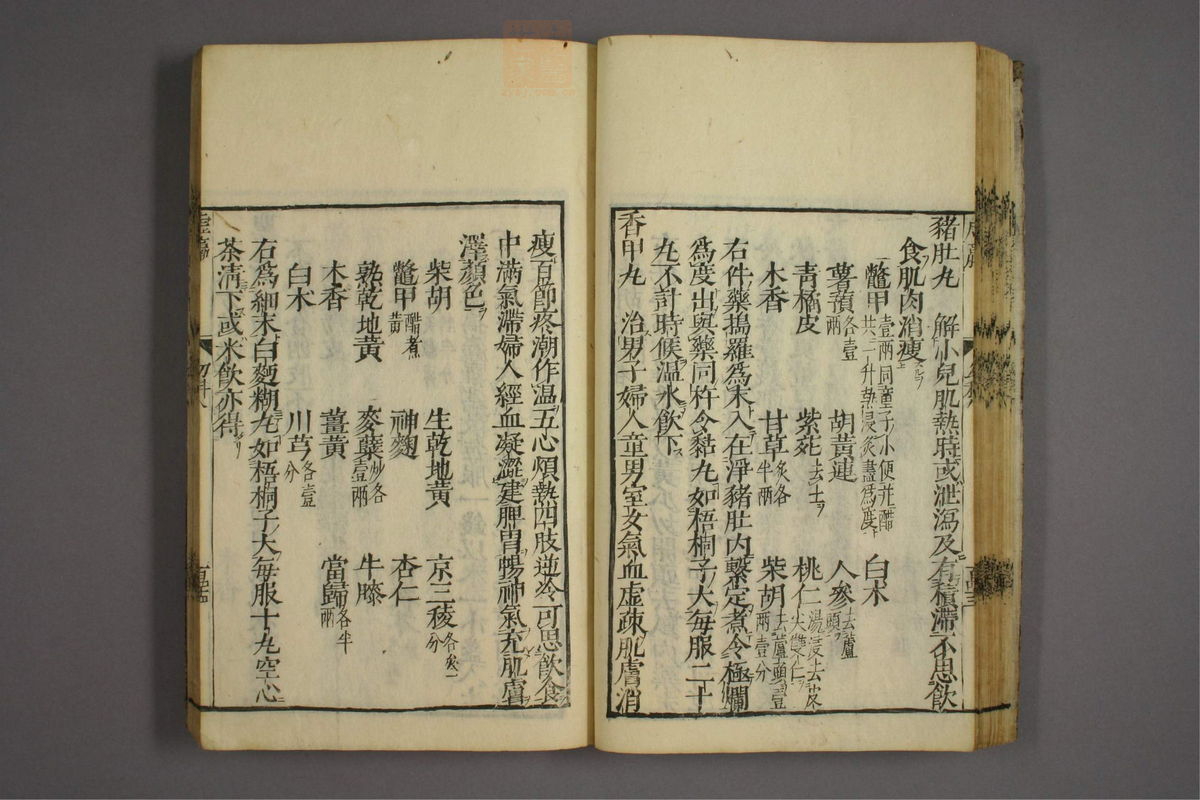 豬肚丸　解小兒肌熱時或泄瀉及有積滯不思飲
食肌肉消瘦
鱉甲壹兩同童子小便并醋共二升熱浸炙盡爲度　白朮
薯蕷各壹兩　胡黃連　人參去蘆頭
青橘皮　紫菀去土　桃仁湯浸去皮尖雙仁
木香　甘草炙各半兩　柴胡去蘆頭壹兩壹分
右件藥搗羅爲末入在淨豬肚內繫定煮令極爛
爲度出與藥同杵令黏丸如梧桐子大每服二十
丸不計時候溫水飲下
香甲丸　治男子婦人童男室女氣血虛疎肌膚消
瘦百節疼潮作溫五心煩熱四肢逆冷可思飲食
中滿氣滯婦人經血凝澀建脾胃暢神氣充肌膚
澤顏色
柴胡　生乾地黃　京三稜各分
鱉甲醋煮黃　神麴　杏仁
熟乾地黃　麥蘖炒各壹兩　牛膝
木香　薑黃　當歸各半兩
白朮　川芎各壹分
右爲細末白麵糊丸如梧桐子大每服十丸空心
茶清下或米飲亦得